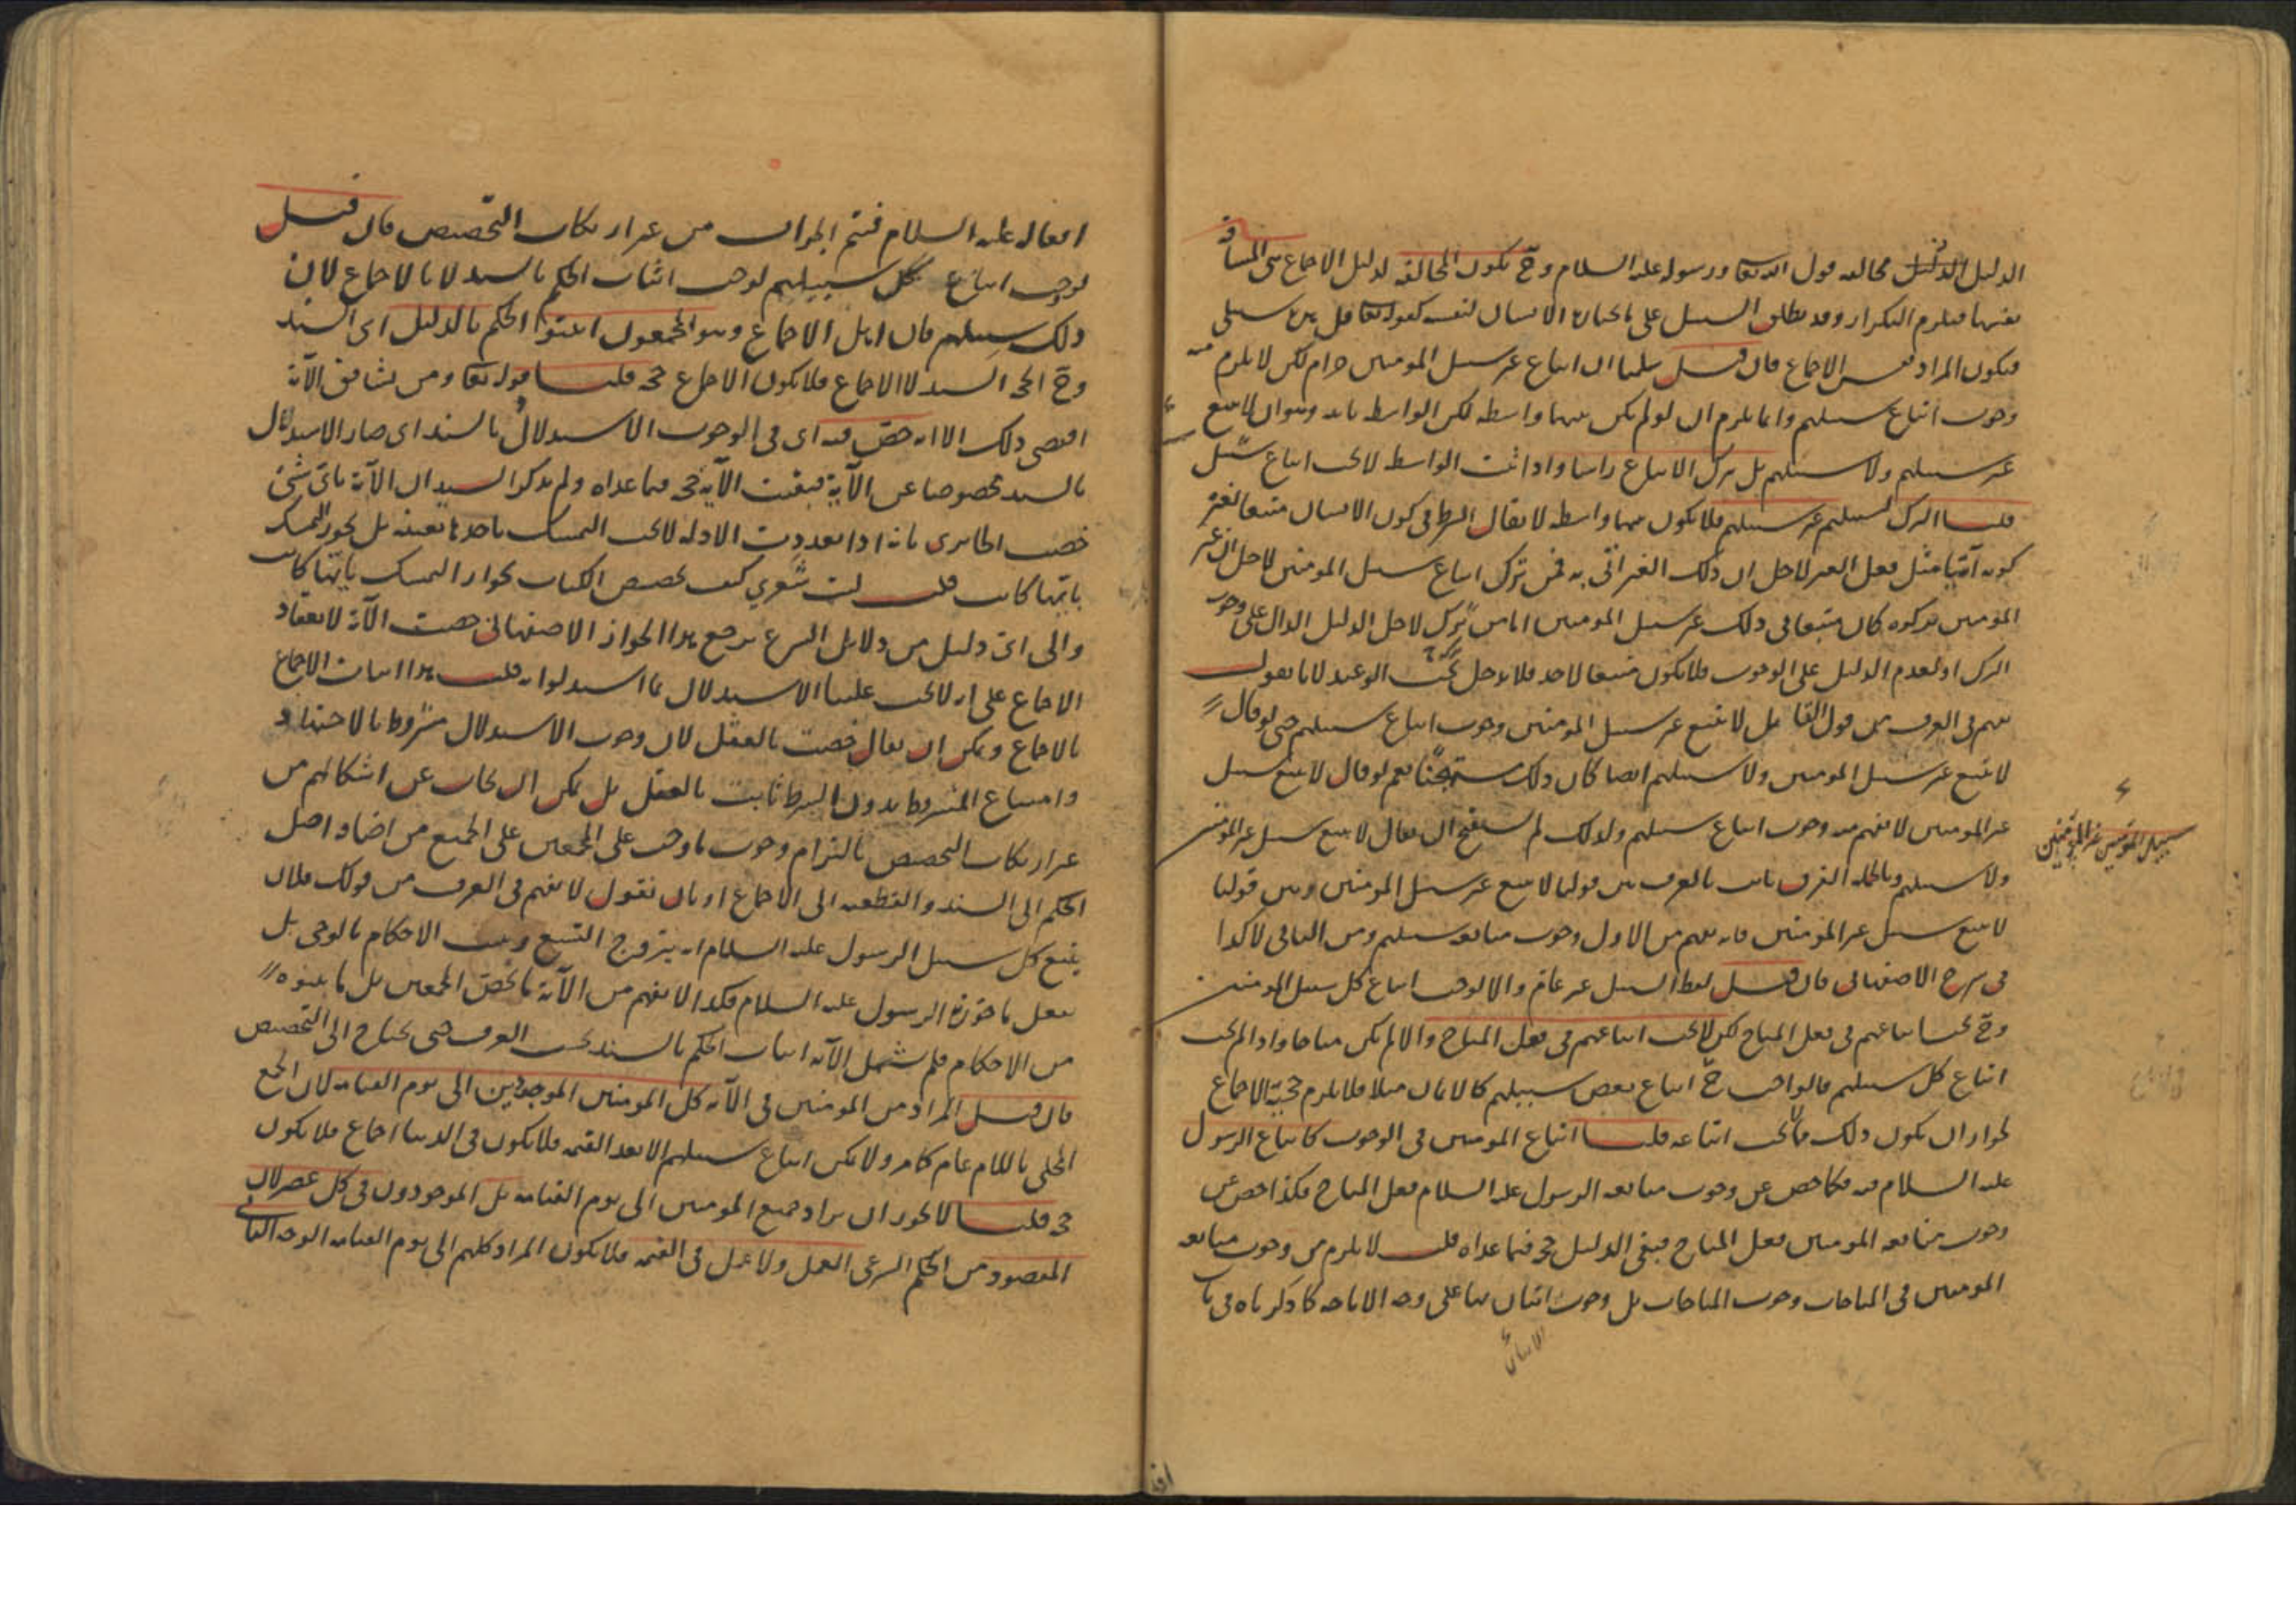 الدليل مخالفه قول الله تعا ورسوله عليه السلام وح يكون المخالفه لدليل الاجماع هى المشاقه
بعينها فيلزم التكرار وقد يطلق السبيل على ما يختاره الانسان لنفسه كقوله تعا قل هذه سبيلى
فيكون المراد نفس الاجماع فان قيل سلمنا ان اتباع غير سبيل المومنين حرام لكن لا يلزم منه
وجوب اتباع سبيلهم وانما يلزم ان لو لم يكن بينهما واسطه لكن الواسطه ثابته وهو ان لا يتبع
غير سبيلهم ولا سبيلهم بل يترك الاتباع راسا واذا ثبت الواسطه لا يجب اتباع سبيل
قلنا الترك لسبيلهم غير سبيلهم فلا يكون بينهما واسطه لا يقال الشرط فى كون الانسان متبعا لغيره
كونه آتيا مثل فعل الغير لاجل ان ذلك الغير اتى به فمن ترك اتباع سبيل المومنين لاجل ان غير
المومنين تركوه كان متبعا فى ذلك غير سبيل المومنين اما من ترك لاجل الدليل الدال على وجوب
الترك او لعدم الدليل على الوجوب فلا يكون متبعا لاحد فلا يدخل تحت الوعيد لانا نقول
يفهم فى العرف من قول القائل لا تتبع غير سبيل المومنين وجوب اتباع سبيلهم حتى لو قال
لا تتبع غير سبيل المومنين ولا سبيلهم ايضا كان ذلك مستهجنا نعم لو قال لا تتبع سبيل
غير المومنين لا يفهم منه وجوب اتباع سبيلهم ولذلك لم يستقبح ان يقال لا تتبع سبيل غير المومنين
ولا سبيلهم وبالجمله الفرق ثابت بالعرف بين قولنا لا تتبع غير سبيل المومنين وبين قولنا
لا تتبع سبيل غير المومنين فانه يفهم من الاول وجوب متابعه سبيلهم ومن الثانى لا كذا
فى شرح الاصفهانى فان قيل لفظ السبيل غير عام والا لوجب اتباع كل سبيل المومنين
وح يجب اتباعهم فى فعل المباح لكن لا يجب اتباعهم فى فعل المباح والا لم يكن مباحا واذا لم يجب
اتباع كل سبيلهم فالواجب ح اتباع بعض سبيلهم كالايمان مثلا فلا يلزم حجية الاجماع
لجواز ان يكون ذلك مما لا يجب اتباعه قلنا اتباع المومنين فى الوجوب كاتباع الرسول
عليه السلام فيه فكما خص عن وجوب متابعه الرسول عليه السلام فعل المباح فكذا خص عن
وجوب متابعه المومنين فعل المباح فبقى الدليل حجه فيما عداه قلت لا يلزم من وجوب متابعه
المومنين فى المباحات وجوب المباحات بل وجوب اتيان بها على وجه الاباحه كما ذكرناه فى باب
سبيل المومنين غير المومنين
افعاله عليه السلام فتم الجواب من غير ارتكاب التخصيص فان قيل
لوجب اتباع كل سبيلهم لوجب اثبات الحكم بالسند لا بالاجماع لان
ذلك سبيلهم فان اهل الاجماع وهو المجمعون اثبتوا الحكم بالدليل اى السند
وح الحجه السند لا الاجماع فلا يكون الاجماع حجه قلنا قوله تعا ومن يشاقق الآية
اقتضى ذلك الا انه خص فيه اى فى الوجوب الاستدلال بالسند اى صار الاستدلال
بالسند مخصوصا عن الآية فبقيت الآية حجه فيما عداه ولم يذكر السيد ان الآية باى شئ
خصت الجابرى بانه اذا تعددت الادله لا يجب التمسك باحدها بعينه بل يجوز التمسك
بايتها كانت قلت ليت شعري كيف تخصيص الكتاب بجواز التمسك بايتها كانت
والى اى دليل من دلايل الشرع يرجع هذا الجواز الاصفهانى خصت الآية لانعقاد
الاجماع على انه لا يجب علينا الاستدلال بما استدلوا به قلت هذا اثبات الاجماع
بالاجماع ويمكن ان يقال خصت بالعقل لان وجوب الاستدلال مشروط بالاجتهاد
وامتناع المشروط بدون الشرط ثابت بالعقل بل يمكن ان يجاب عن اشكالهم من
غير ارتكاب التخصيص بالتزام وجوب ما وجب على المجمعين على الجميع من اضافه اصل
الحكم الى السند والقطعيه الى الاجماع او بان نقول لا يفهم فى العرف من قولك فلان
يتبع كل سبيل الرسول عليه السلام انه يتزوج التسع ويثبت الاحكام بالوحى بل
يفعل ما جوزه الرسول عليه السلام فكذا لا يفهم من الآية ما يخص المجمعين بل ما بينوه
من الاحكام فلم تشمل الآية اثبات الحكم بالسند بحسب العرف حتى يحتاج الى التخصيص
فان قيل المراد من المومنين فى الآية كل المومنين الموجودين الى يوم القيامه لان الجمع
المحلى باللام عام كما مر ولا يمكن اتباع سبيلهم الا بعد القيمه فلا يكون فى الدنيا اجماع فلا يكون
حجه قلنا لا يجوز ان يراد جميع المومنين الى يوم القيامه بل الموجودون فى كل عصر لان
المقصود من الحكم الشرعى العمل ولا عمل فى القيمه فلا يكون المراد كلهم الى يوم القيامه الوجه الثانى